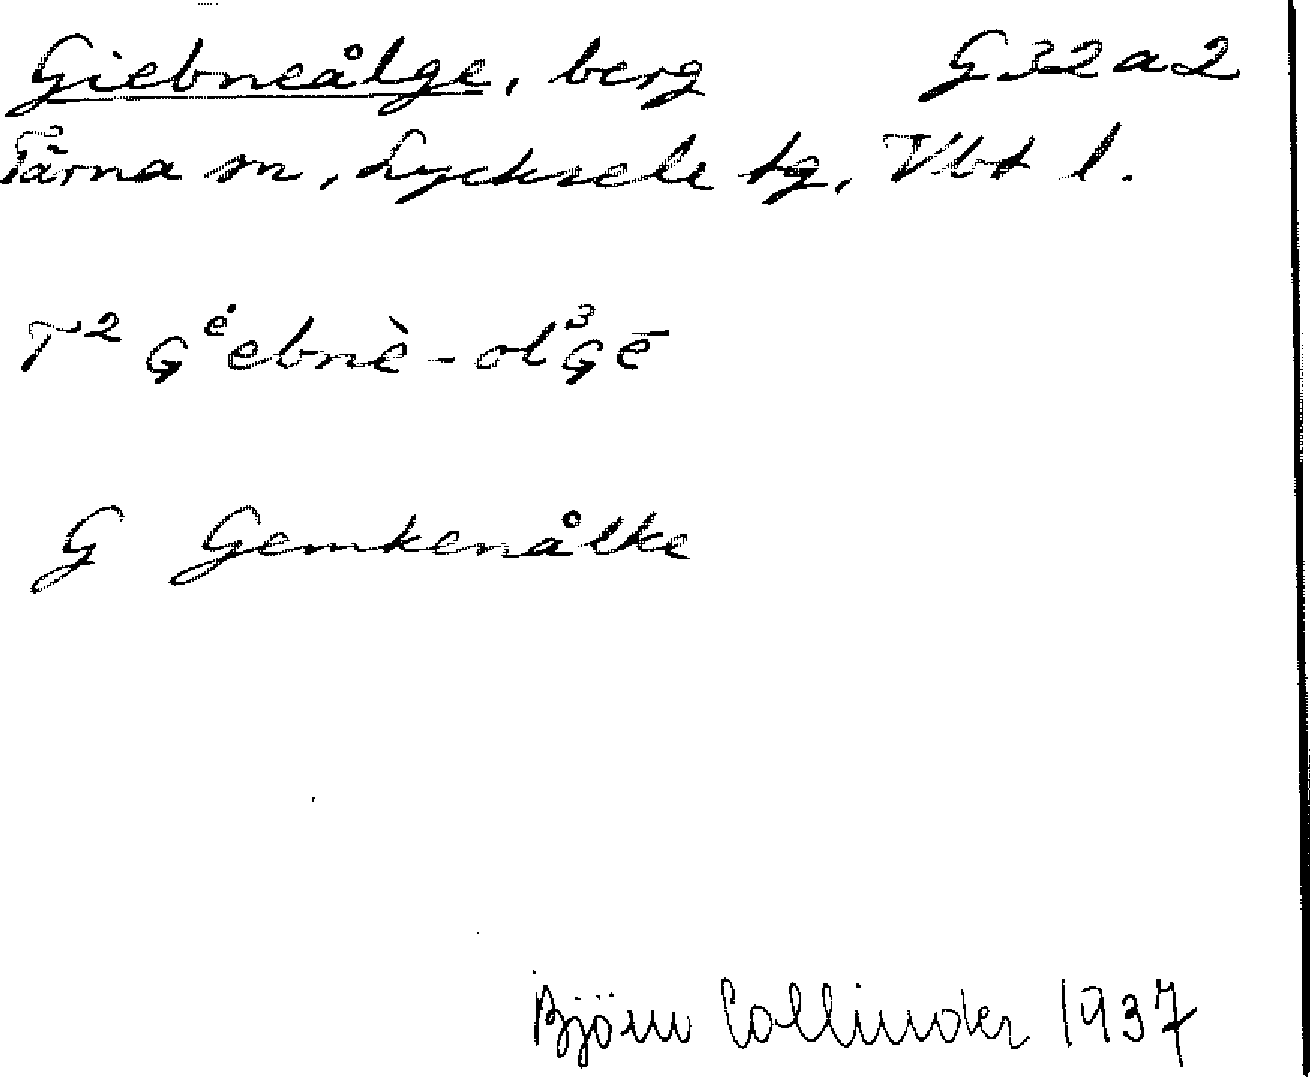 Giebneålge, berg G32a2
Tärna sn, Lycksele tg, Vbt l.
T² Gᵉ̇ebnè-ol³Gē
G Gemkenålke
Björn Collinder 1937